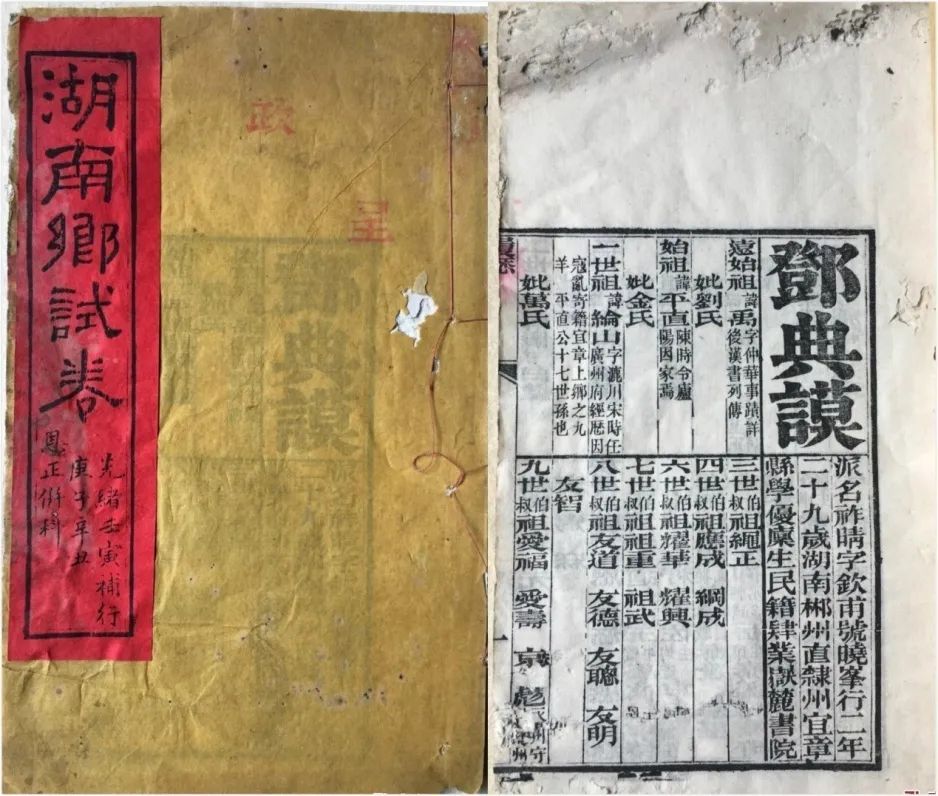 湖南鄉試卷
光緒壬寅補行
庚子辛丑
恩正併科
政
呈
鄧典謨
派名祚晴字欽甫號曉峯行二年
二十九歲湖南郴州直隸州宜章
縣學優廩生民籍肄業嶽麓書院
遠始祖諱禹字仲華事蹟詳
後漢書列傳
妣劉氏
始祖諱平直陳時令廬
陽因家焉
妣金氏
一世祖諱綸山字漉川宋時任
廣州府經歷因
寇亂寄籍宜章上鄉之九
羊 平直公十七世孫也
妣萬氏
三世伯叔祖繩正
四世伯叔祖應成 綱成
六世伯叔祖耀華 耀興
七世伯叔祖重 祖武
八世伯叔祖友道 友德 友聰 友明
友智
九世伯叔祖愛福 愛壽 彪